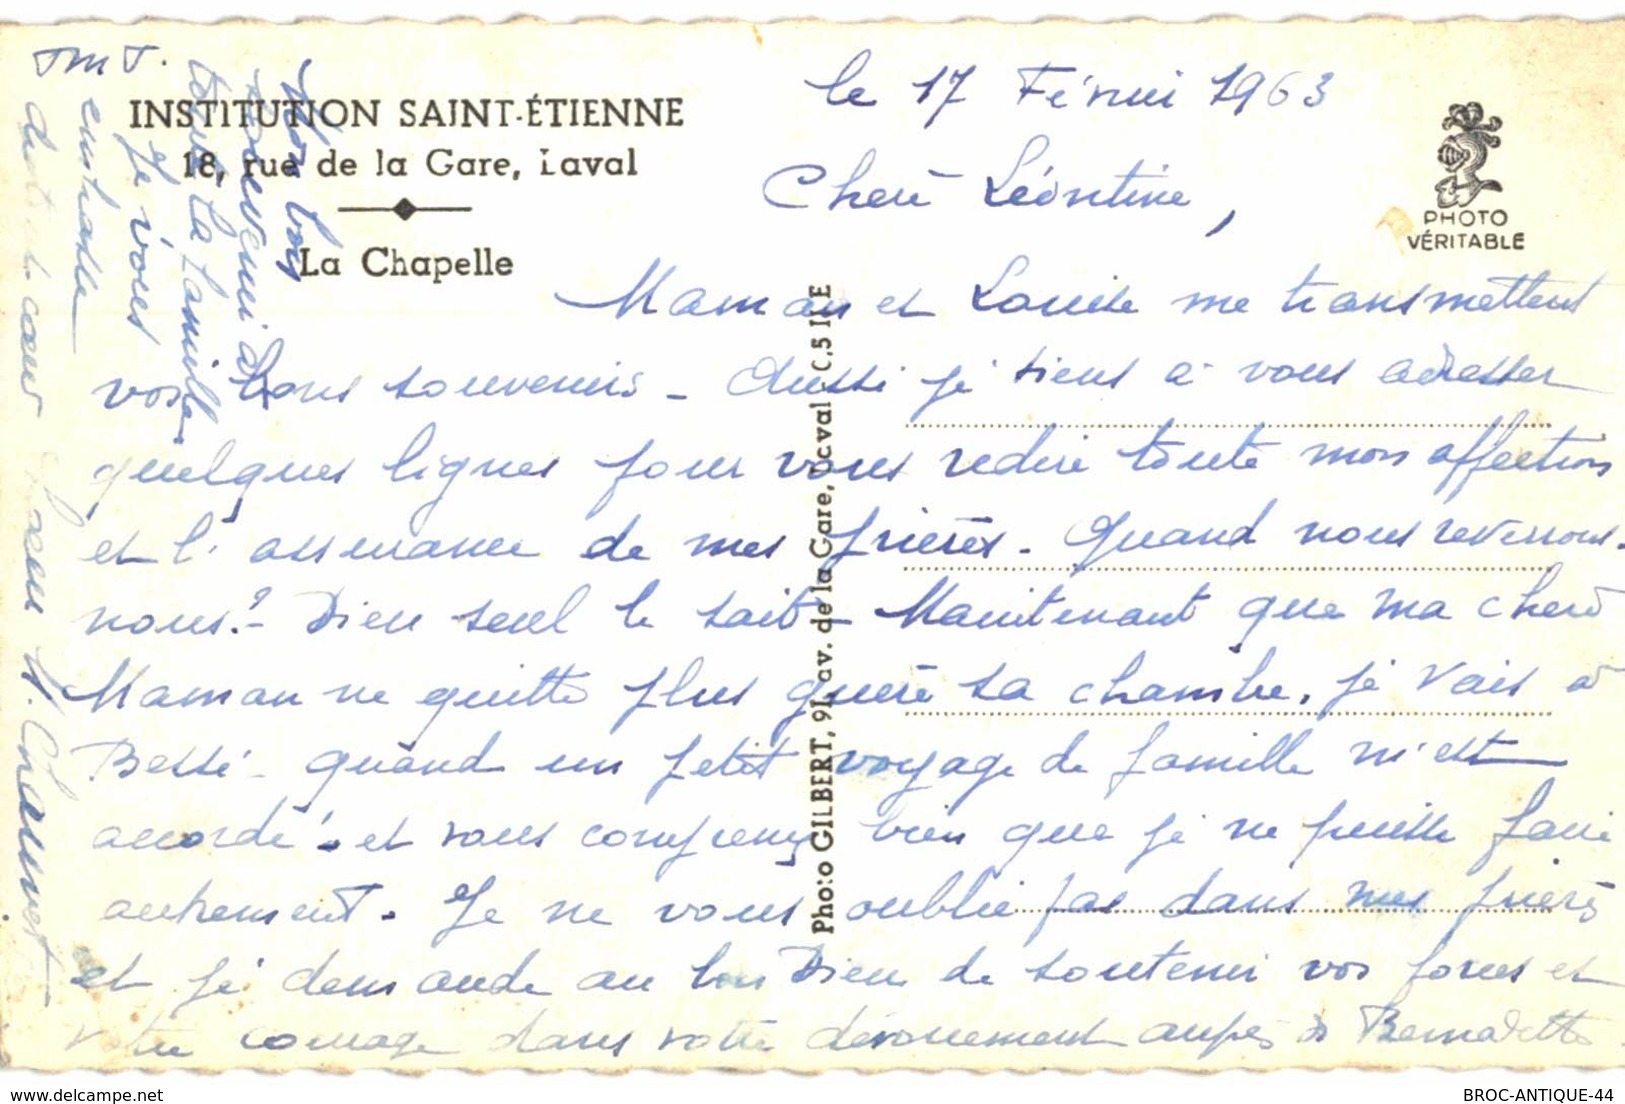 INSTITUTION SAINT-ÉTIENNE
18, rue de la Gare, Laval
La Chapelle
PHOTO
VÉRITABLE
Photo GILBERT, 91, av. de la Gare, Laval C.5 ILE
le 17 Février 1963
Chère Léontine,
Maman et Louise me transmettent
vos bons souvenirs - Aussi je tiens à vous adresser
quelques lignes pour vous redire toute mon affection
et l'assurance de mes prières. Quand nous reverrons-
nous? - Dieu seul le sait - Maintenant que ma chère
Maman ne quitte plus guère sa chambre, je vais à
Bessé quand un petit voyage de famille m'est
accordé. et vous comprenez bien que je ne puisse faire
autrement. Je ne vous oublie pas dans mes prières
et je demande au bon Dieu de soutenir vos forces et
votre courage dans votre dévouement auprès de Bernadette
Mon bon
souvenir à
toute la famille
Je vous
embrasse
de tout cœur
Chauvet
BROC-ANTIQUE-44